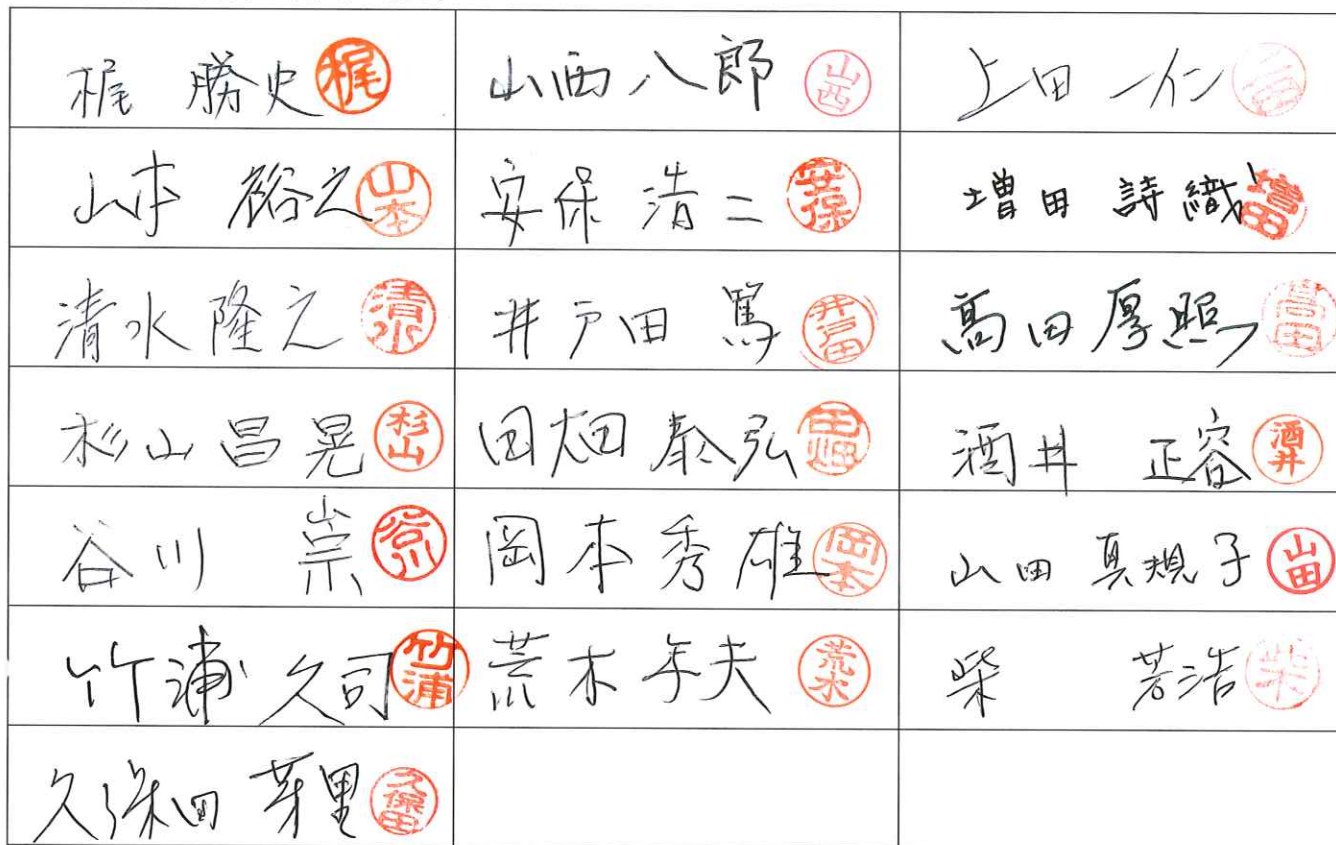 梶 勝史 梶 山西八郎 山西 上田 一仁 上田
山本 裕之 山本 安保 浩二 安保 増田 詩織 増田
清水隆之 清水 井戸田 篤 井戸田 高田厚照 高田
杉山昌晃 杉山 田畑泰弘 田畑 酒井 正容 酒井
谷川 崇 谷川 岡本秀雄 岡本 山田 真規子 山田
竹浦 久司 竹浦 荒木孝夫 荒木 柴 芳浩 柴
久保田 芽里 久保田